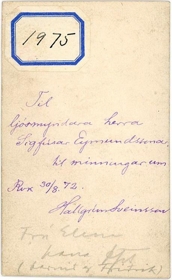 1975
Til
ljósmyndara herra
Sigfúsar Eymundssonar
til minningar um
Rvk 30/8. 72.
Hallgrím Sveinsson
Frá Elínu